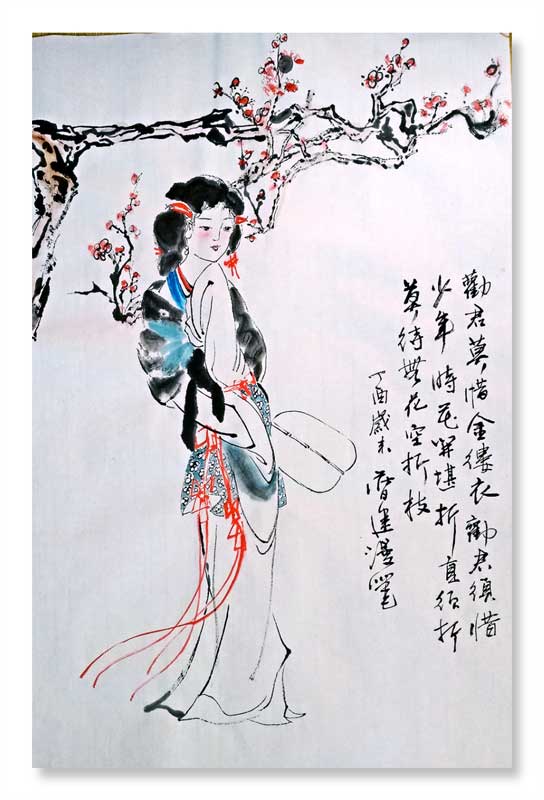 勸君莫惜金縷衣勸君須惜
少年時花開堪折直須折
莫待無花空折枝
丁酉歲末
漫筆